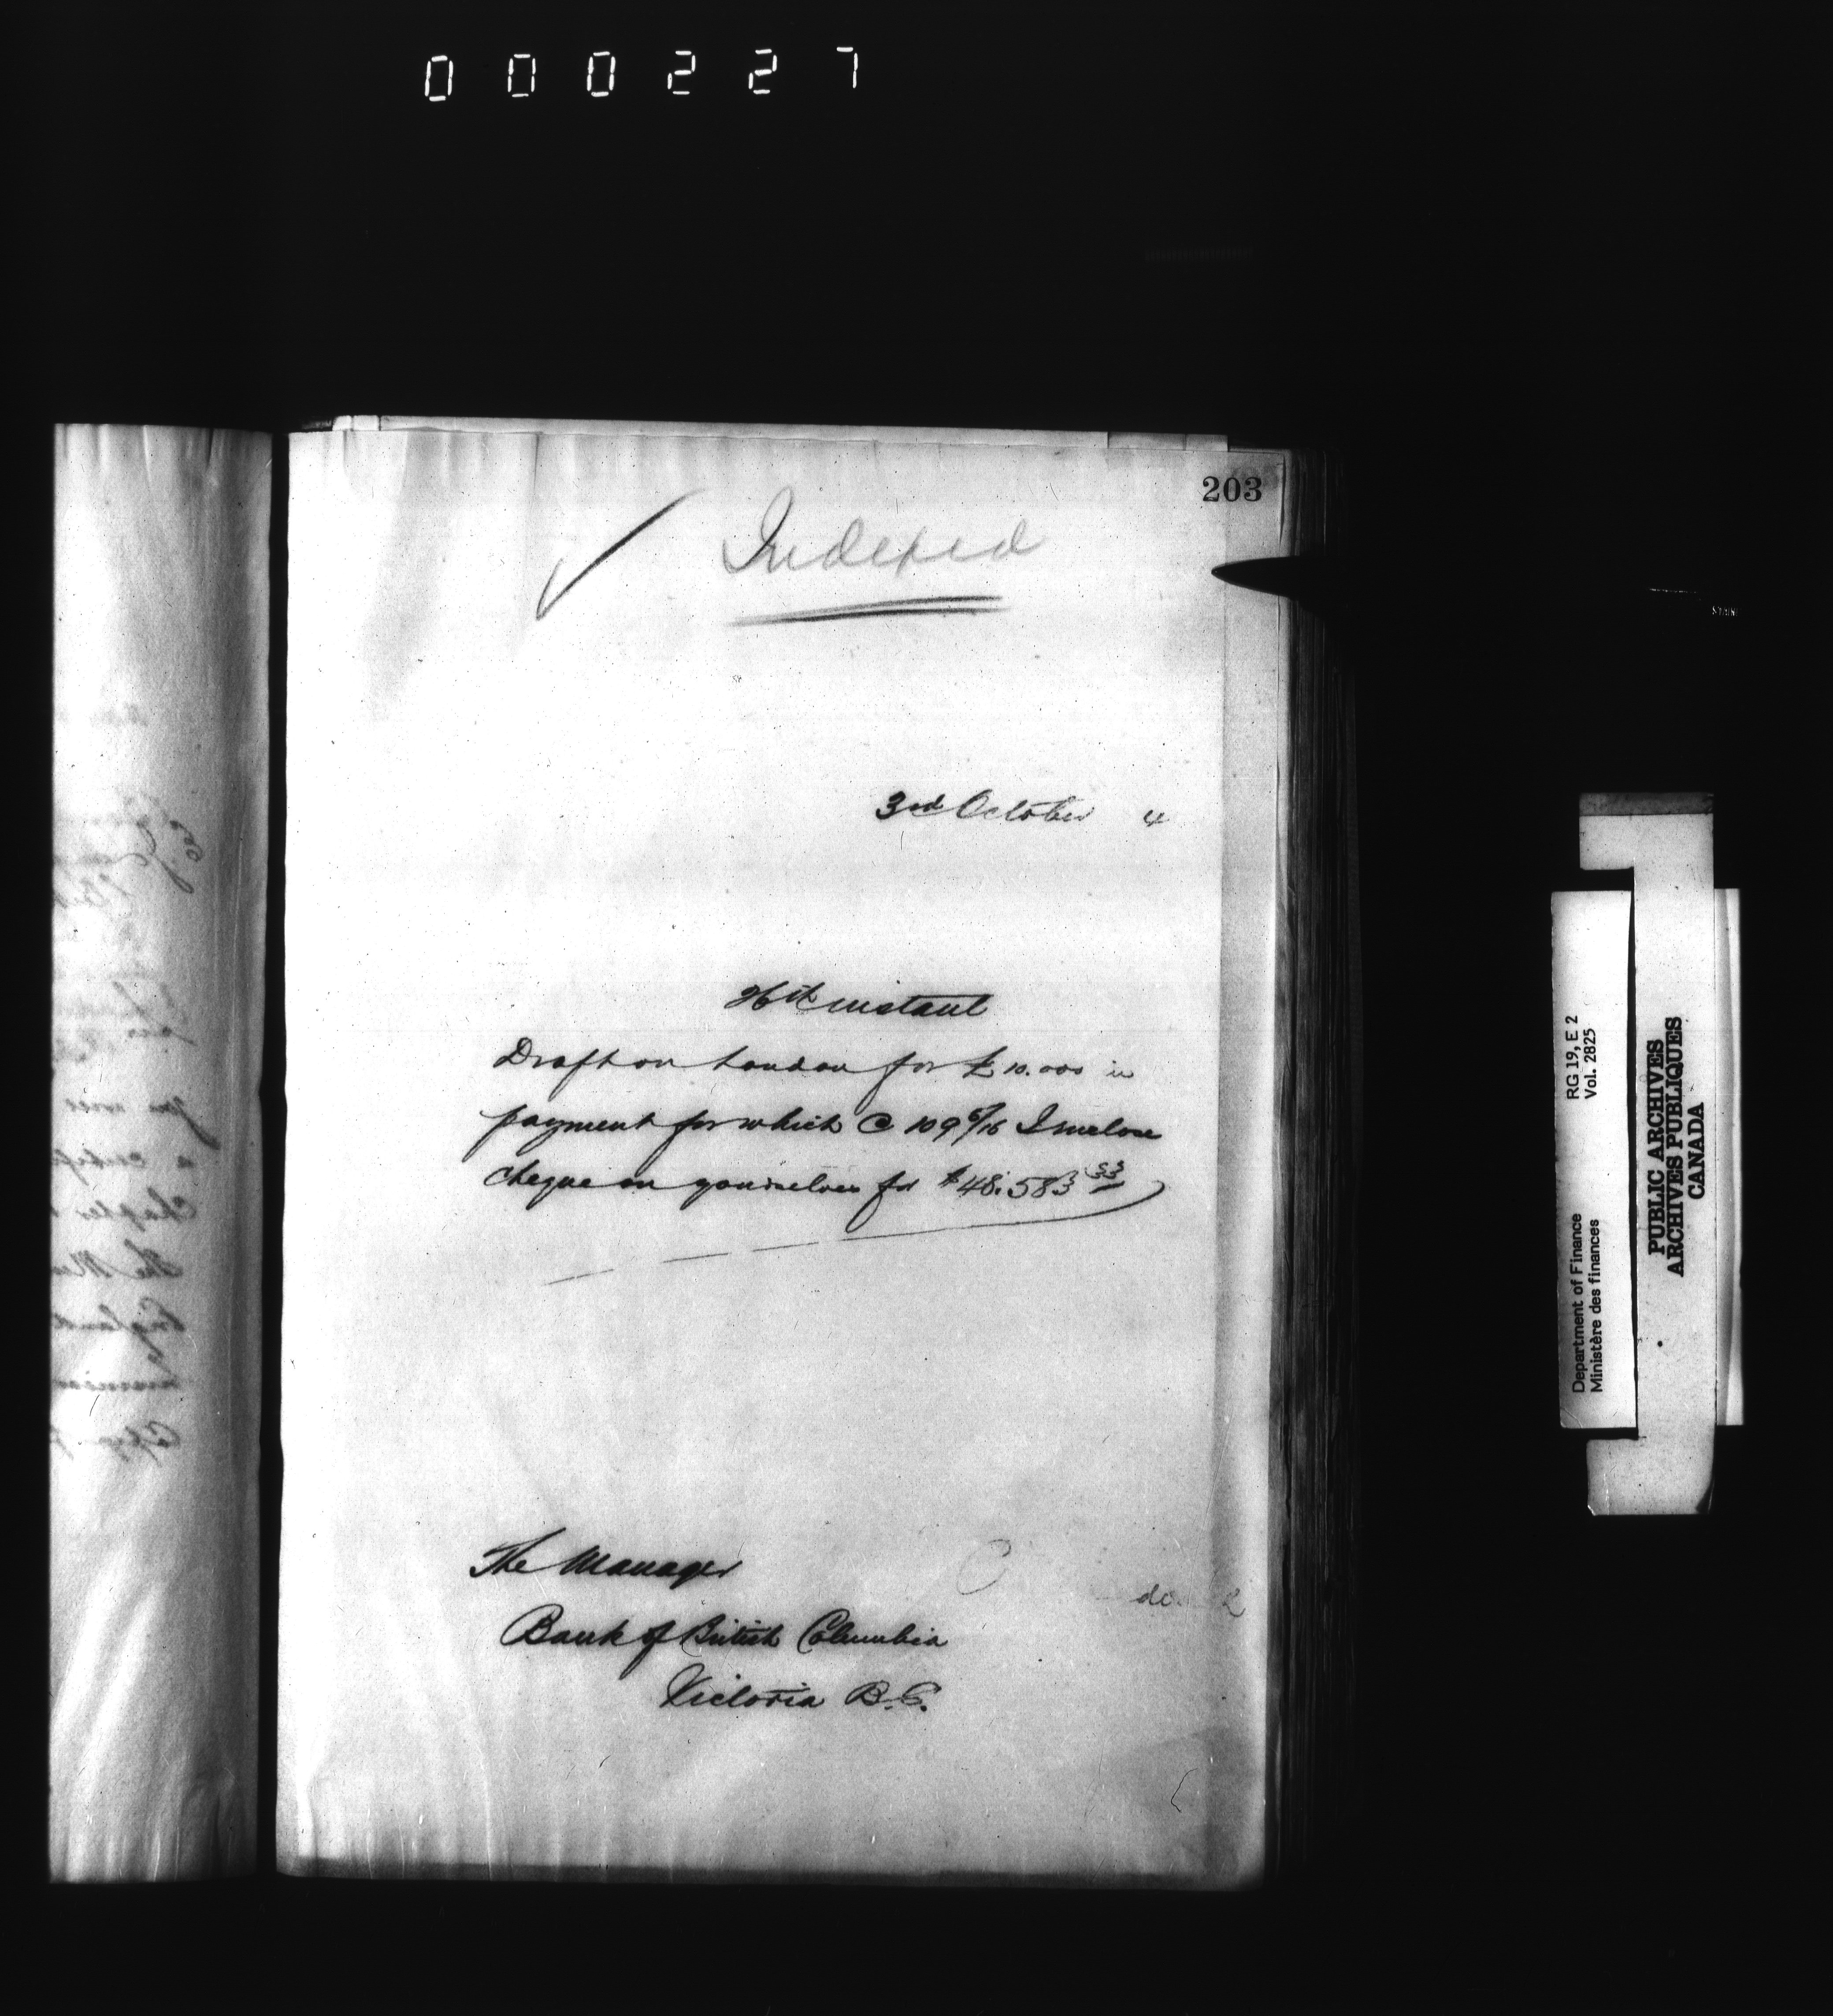 000227
203
Indexed
3rd October 4
26th instant
Draft on London for £10.000 in
payment for which @ 109 5/16 I enclose
cheque on yourselves for $48.583 33
The Manager
Bank of British Columbia
Victoria B.C.
RG 19, E 2
Vol. 2825
Department of Finance
Ministère des finances
PUBLIC ARCHIVES
ARCHIVES PUBLIQUES
CANADA